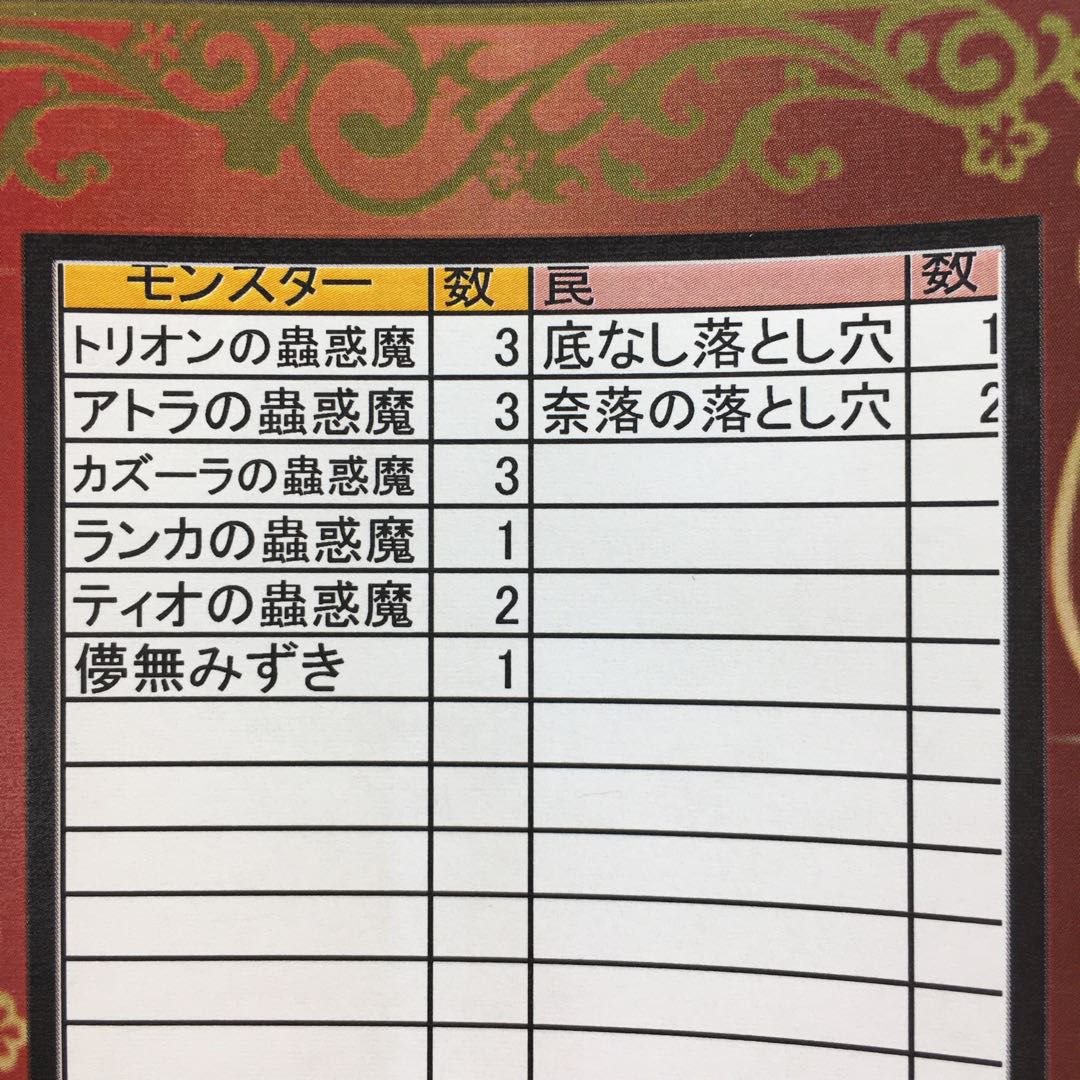 モンスター 数 罠 数
トリオンの蟲惑魔 3 底なし落とし穴 1
アトラの蟲惑魔 3 奈落の落とし穴 2
カズーラの蟲惑魔 3
ランカの蟲惑魔 1
ティオの蟲惑魔 2
儚無みずき 1